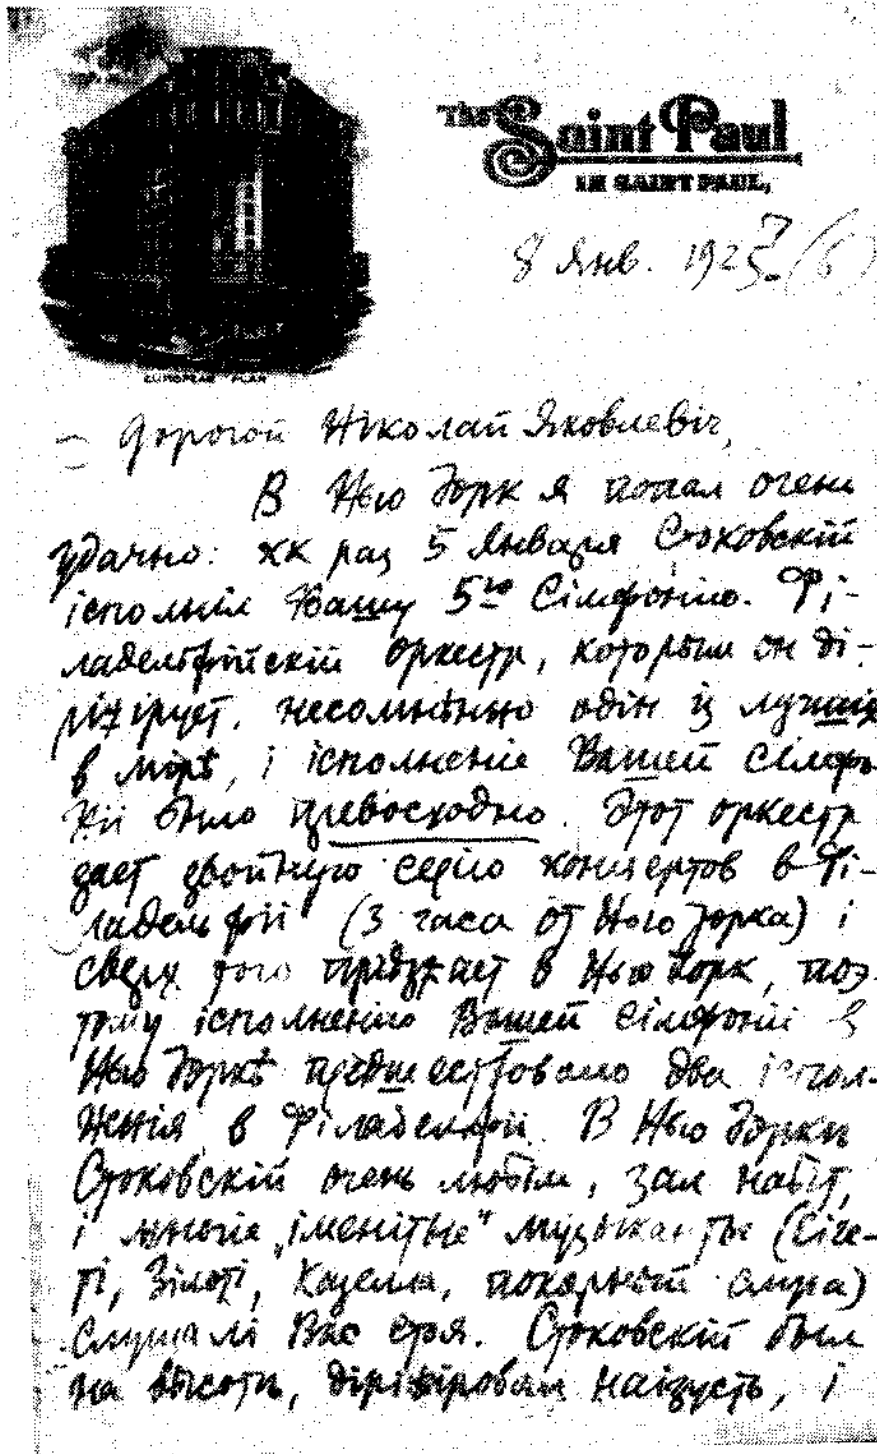 The Saint Paul
IN SAINT PAUL,
8 Янв. 1925 (6)
EUROPEAN PLAN
Дорогой Ніколай Яковлевіч,
В Нью Јорк я попал очень
удачно: как раз 5 Января Стоковскій
ісполніл Вашу 5ую Сімфонію. Фі-
ладельфійскій оркестр, которым он ді-
ріжірует, несомнѣнно одін із лучшіх
в мірѣ, і ісполненіе Вашей Сімфо-
ніі было превосходно. Этот оркестр
дает двойную серію концертов в Фі-
ладельфіі (3 часа от Нью Јорка) і
сверх того пріѣзжает в Нью Јорк, поэ-
тому ісполненію Вашей Сімфоніі в
Нью Јоркѣ предшествовало два іспол-
ненія в Філадельфіі. В Нью Јоркѣ
Стоковскій очень любім, зал набіт,
і многіе „іменітые" музыканты (Сіге-
ті, Зілоті, Казелла, покорный слуга)
слушалі Вас стоя. Стоковскій был
на высотѣ, діріжіровал наізусть, і